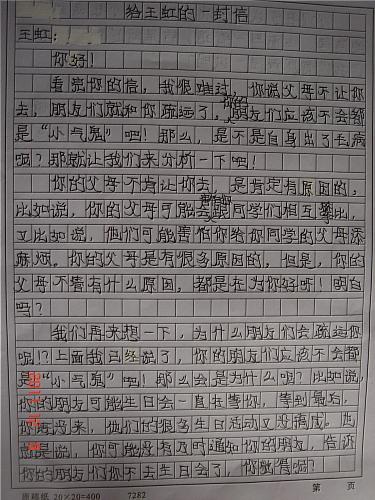 给王虹的一封信
王虹：
你好！
看完你的信，我很难过，你说父母不让你
去，朋友们就和你疏远了，你的朋友们应该不会都
是“小气鬼”吧！那么，是不是自身出了毛病
呢？那就让我们来分析一下吧！
你的父母不肯让你去，是肯定有原因的，
比如说，你的父母可能会跟同学们相互攀比，
又比如说，他们可能害怕你给你同学的父母添
麻烦。你的父母是有很多原因的，但是，你的
父母不管有什么原因，都是在为你好呀！明白
吗？
我们再来想一下，为什么朋友们会疏远你
呢！？上面我已经说了，你的朋友们应该不会都
是“小气鬼”吧！那么会是为什么呢？比如说，
你的朋友可能生日会一直在等你，等到最后，
你再没来，他们的很多生日活动又没搞成。也
就是说，你可能没有及时通知你的朋友，告诉
你的朋友们你不去生日会了，你说有呢？
原稿纸 20×20=400 7282 第 页